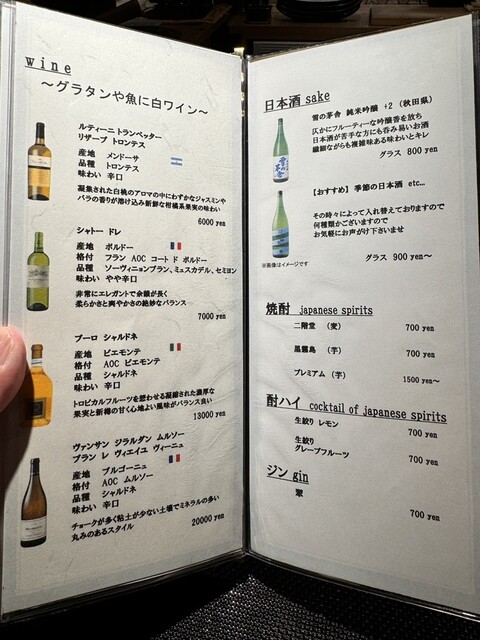 wine
～グラタンや魚に白ワイン～
ルティーニ トランペッター
リザーブ トロンテス
産地 メンドーサ
品種 トロンテス
味わい 辛口
凝集された白桃のアロマの中にわずかなジャスミンや
バラの香りが溶け込み新鮮な柑橘系果実の味わい
6000 yen
シャトー ドレ
産地 ボルドー
格付 フラン AOC コート ド ボルドー
品種 ソーヴィニョンブラン、ミュスカデル、セミヨン
味わい やや辛口
非常にエレガントで余韻が長く
柔らかさと爽やかさの絶妙なバランス
7000 yen
プーロ シャルドネ
産地 ピエモンテ
格付 AOC ピエモンテ
品種 シャルドネ
味わい 辛口
トロピカルフルーツを想わせる凝縮された濃厚な
果実と新樽の甘く心地よい風味がバランス良い
13000 yen
ヴァンサン ジラルダン ムルソー
ブラン レ ヴィエイユ ヴィーニュ
産地 ブルゴーニュ
格付 AOC ムルソー
品種 シャルドネ
味わい 辛口
チョークが多く粘土が少ない土壌でミネラルの多い
丸みのあるスタイル 20000 yen
日本酒 sake
雪の茅舎 純米吟醸 +2 (秋田県)
仄かにフルーティーな吟醸香を放ち
日本酒が苦手な方にも呑み易いお酒
繊細ながらも複雑味ある味わいとキレ
グラス 800 yen
【おすすめ】季節の日本酒 etc...
その時々によって入れ替えておりますので
何種類かございますので
お気軽にお声がけ下さいませ
※画像はイメージです
グラス 900 yen～
焼酎 japanese spirits
二階堂 (麦) 700 yen
黒霧島 (芋) 700 yen
プレミアム (芋) 1500 yen～
酎ハイ cocktail of japanese spirits
生絞り レモン 700 yen
生絞り
グレープフルーツ 700 yen
ジン gin
翠 700 yen